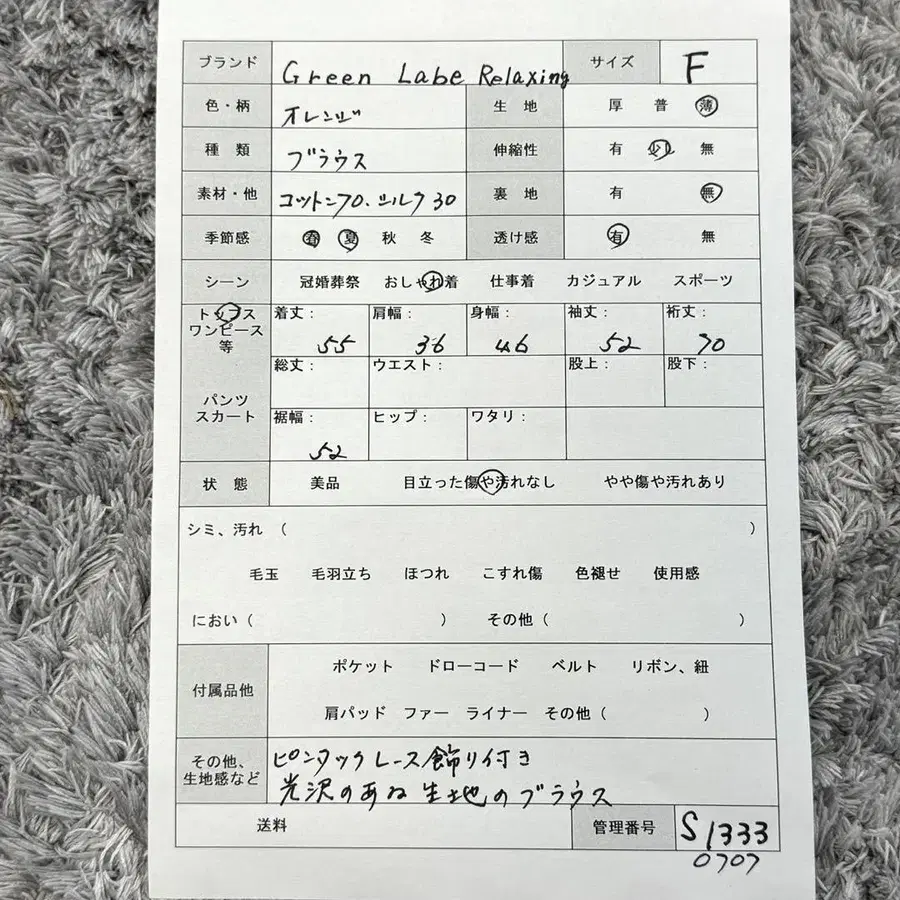 ブランド Green Labe Relaxing サイズ F
色・柄 オレンジ 生地 厚 普 薄
種類 ブラウス 伸縮性 有 無
素材・他 コットン70.シルク30 裏地 有 無
季節感 春 夏 秋 冬 透け感 有 無
シーン 冠婚葬祭 おしゃれ着 仕事着 カジュアル スポーツ
トップス
ワンピース
等
着丈： 55 肩幅： 36 身幅： 46 袖丈： 52 裄丈： 70
パンツ
スカート
総丈： ウエスト： 股上： 股下：
裾幅： 52 ヒップ： ワタリ：
状態 美品 目立った傷や汚れなし やや傷や汚れあり
シミ、汚れ（ ）
毛玉 毛羽立ち ほつれ こすれ傷 色褪せ 使用感
におい（ ） その他（ ）
付属品他 ポケット ドローコード ベルト リボン、紐
肩パッド ファー ライナー その他（ ）
その他、
生地感など
ピンタックレース飾り付き
光沢のある生地のブラウス
送料 管理番号 S1333
0707